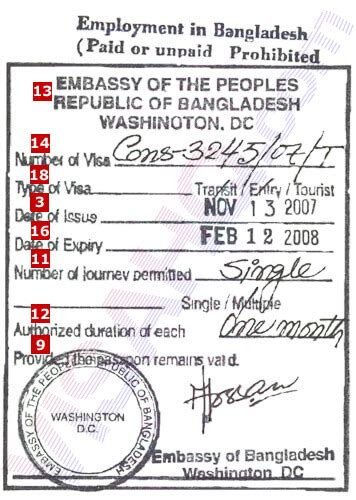 Employment in Bangladesh
(Paid or unpaid Prohibited
13 EMBASSY OF THE PEOPLES
REPUBLIC OF BANGLADESH
WASHINGTON, DC
14
Number of Visa Cons-3245/07/T
18
Type of Visa Transit / Entry / Tourist
3
Date of Issue NOV 13 2007
16
Date of Expiry FEB 12 2008
11
Number of journey permitted Single
Single / Multiple
12
Authorized duration of each One month
9
Provided the passport remains valid.
EMBASSY OF THE PEOPLES REPUBLIC OF BANGLADESH
WASHINGTON
D.C.
Embassy of Bangladesh
Washington, DC